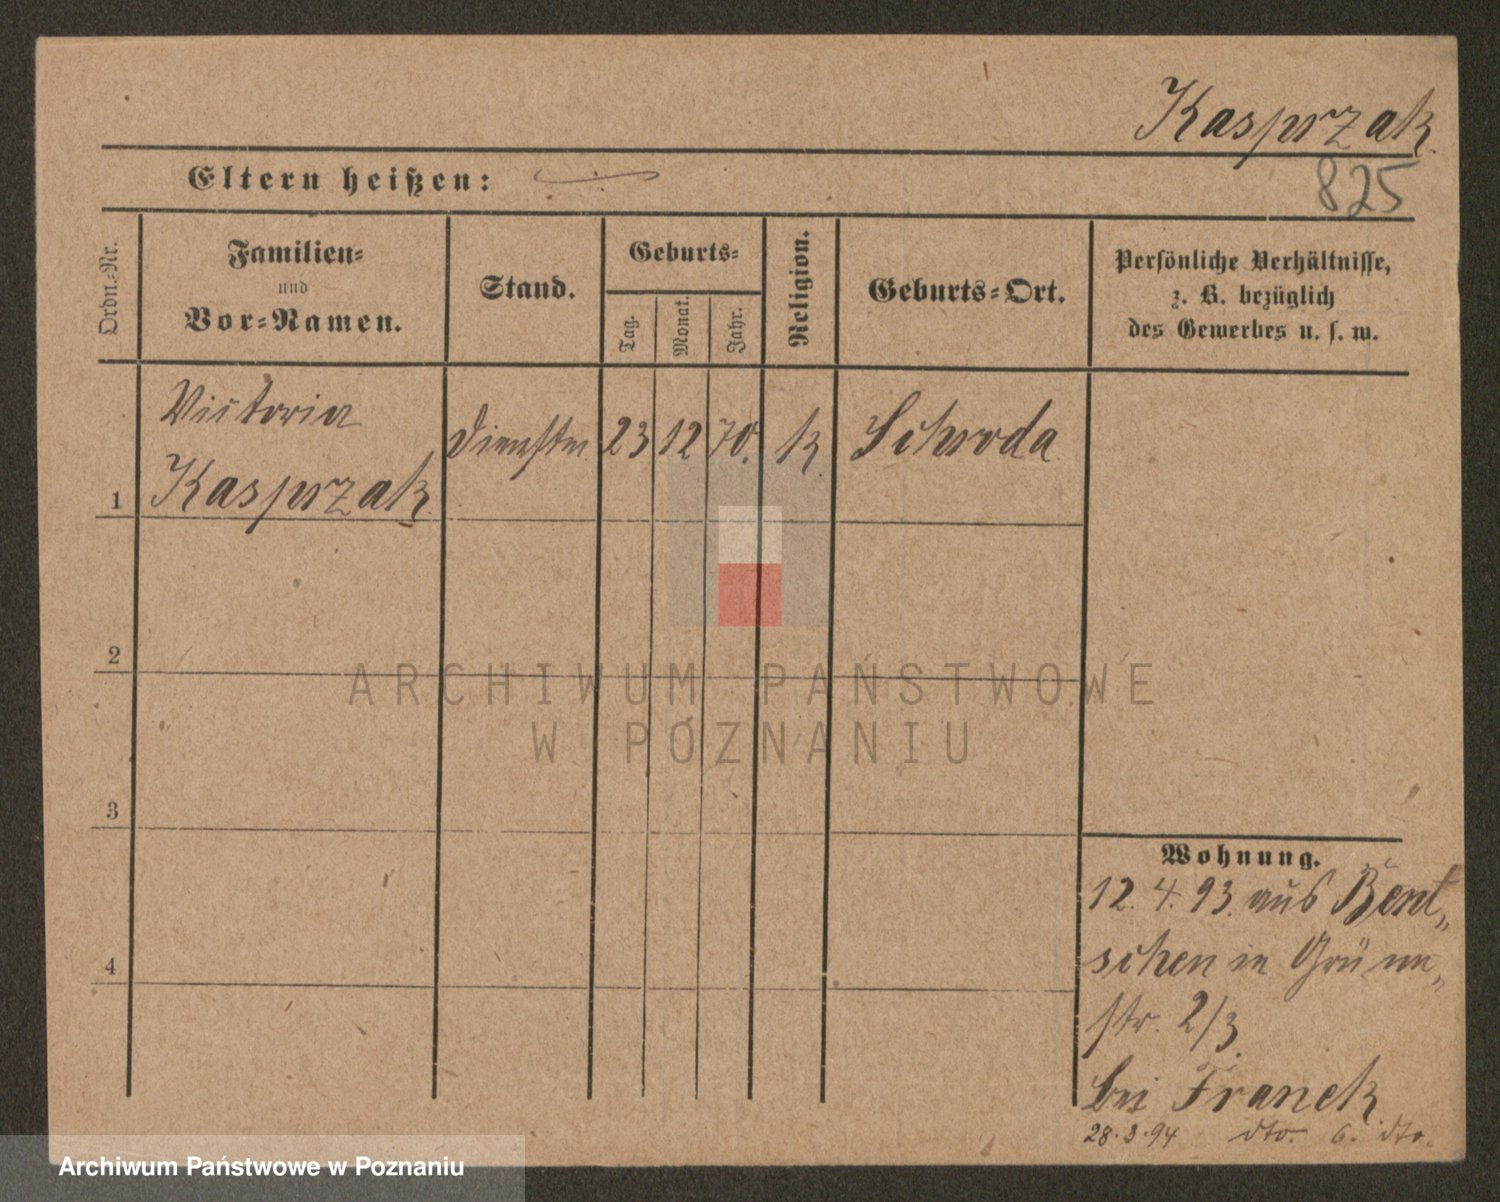 Kasprzak
Eltern heißen:
825
Ordn.-Nr.
Familien-
und
Vor-Namen.
Stand.
Geburts-
Tag.
Monat.
Jahr.
Religion.
Geburts-Ort.
Persönliche Verhältnisse,
z. B. bezüglich
des Gewerbes u. s. w.
Victoria
Kasprzak
Dienstm.
23
12
70.
k.
Schroda
1
2
3
4
ARCHIWUM PAŃSTWOWE
W POZNANIU
Wohnung.
12. 4. 93. aus Bent„
schen in Grünn„
str. 2/3.
bei Franck
28.3.94 dto. 6. dto.
Archiwum Państwowe w Poznaniu